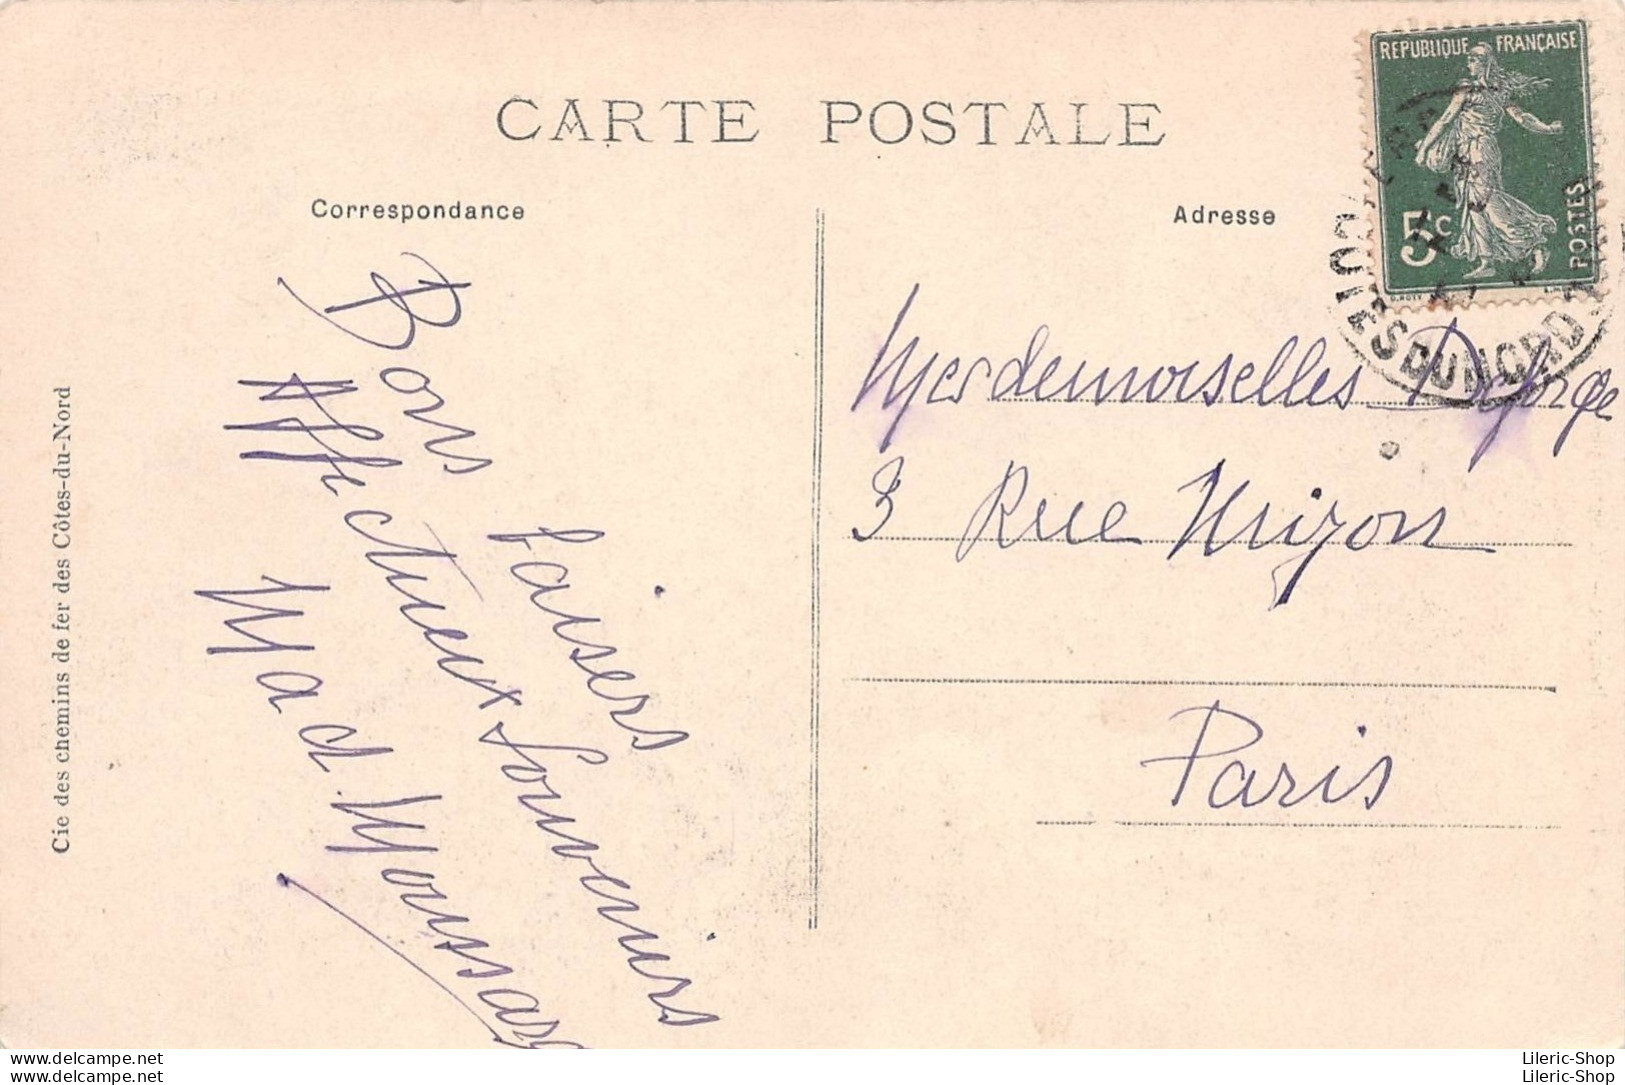 CARTE POSTALE
Correspondance
Adresse
REPUBLIQUE FRANÇAISE
5c
POSTES
COTES DU NORD
Cie des chemins de fer des Côtes-du-Nord
Bons baisers
Affectueux Souvenirs
Mad. Moussard
Mesdemoiselles
3 Rue Mizon
Paris
www.delcampe.net
www.delcampe.net
Lileric-Shop
Lileric-Shop